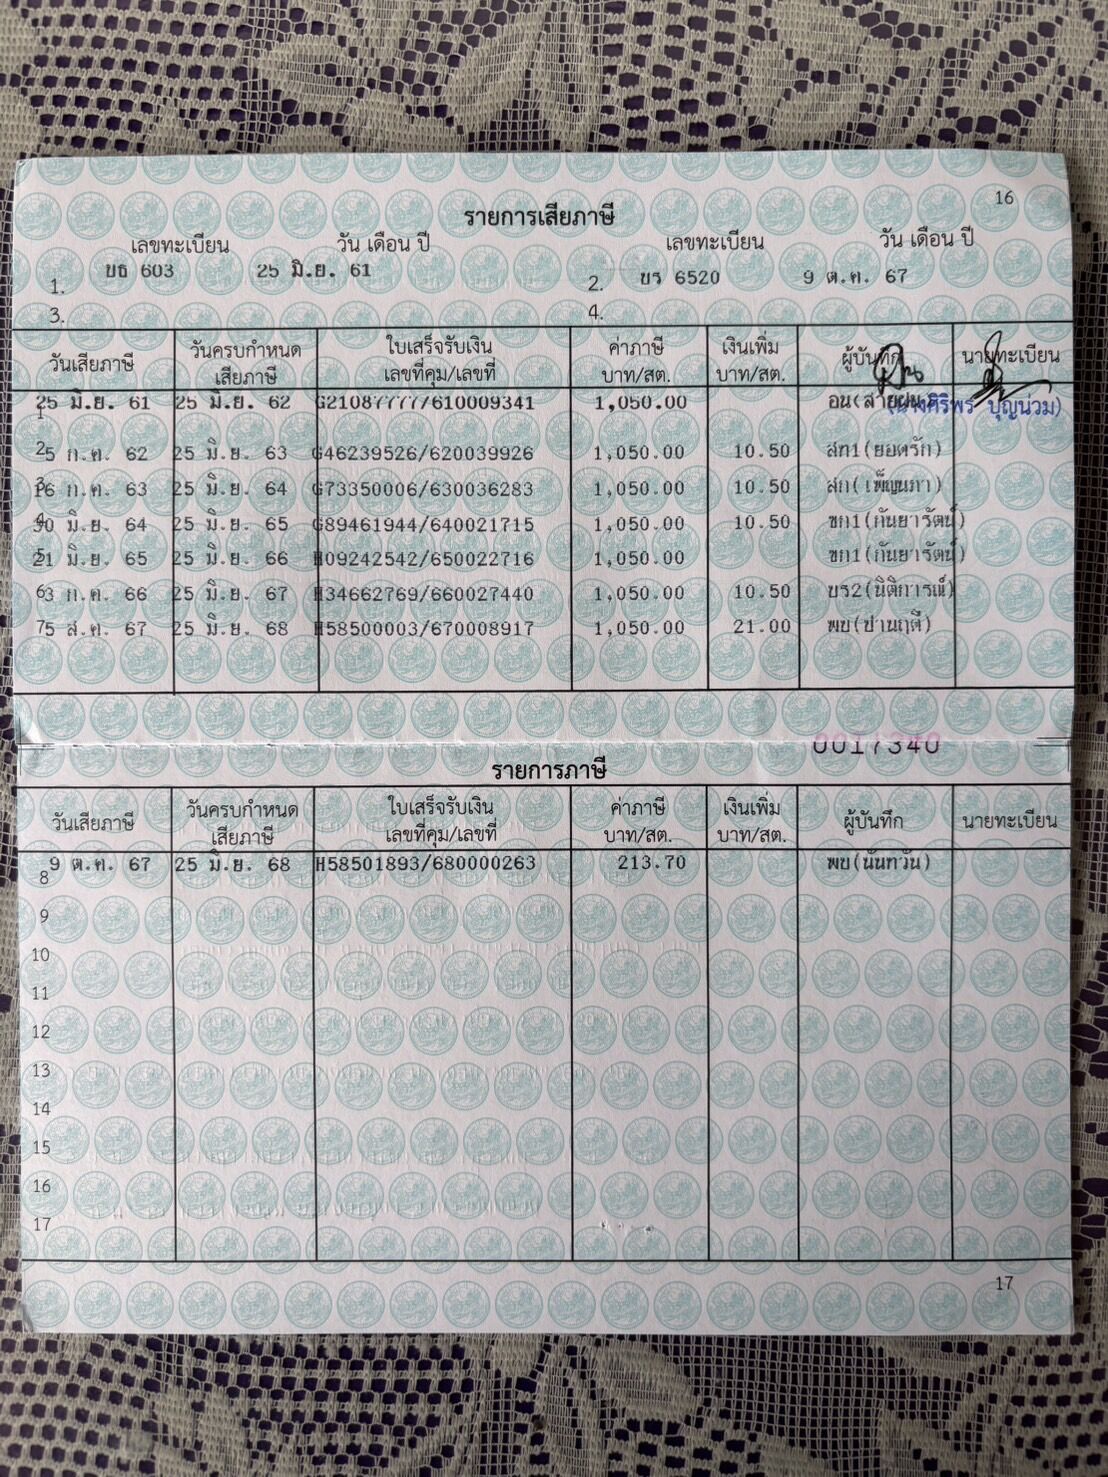 16
รายการเสียภาษี
เลขทะเบียน วัน เดือน ปี เลขทะเบียน วัน เดือน ปี
1. ขธ 603 25 มิ.ย. 61 2. ขร 6520 9 ต.ค. 67
3. 4.
วันเสียภาษี วันครบกำหนดเสียภาษี ใบเสร็จรับเงิน เลขที่คุม/เลขที่ ค่าภาษี บาท/สต. เงินเพิ่ม บาท/สต. ผู้บันทึก นายทะเบียน
1 25 มิ.ย. 61 25 มิ.ย. 62 G21087777/610009341 1,050.00 อน(สายฝน)
บุญน่วม)
2 5 ก.ค. 62 25 มิ.ย. 63 G46239526/620039926 1,050.00 10.50 สท1(ยอดรัก)
3 16 ก.ค. 63 25 มิ.ย. 64 G73350006/630036283 1,050.00 10.50 สก(เพ็ญนภา)
4 30 มิ.ย. 64 25 มิ.ย. 65 G89461944/640021715 1,050.00 10.50 ชก1(กันยารัตน์)
5 21 มิ.ย. 65 25 มิ.ย. 66 H09242542/650022716 1,050.00 ชก1(กันยารัตน์)
6 3 ก.ค. 66 25 มิ.ย. 67 H34662769/660027440 1,050.00 10.50 บร2(นิติการณ์)
7 5 ส.ค. 67 25 มิ.ย. 68 H58500003/670008917 1,050.00 21.00 พบ(ชานฤดี)
0017340
รายการภาษี
วันเสียภาษี วันครบกำหนดเสียภาษี ใบเสร็จรับเงิน เลขที่คุม/เลขที่ ค่าภาษี บาท/สต. เงินเพิ่ม บาท/สต. ผู้บันทึก นายทะเบียน
8 9 ต.ค. 67 25 มิ.ย. 68 H58501893/680000263 213.70 พบ(นันทวัน)
9
10
11
12
13
14
15
16
17
17